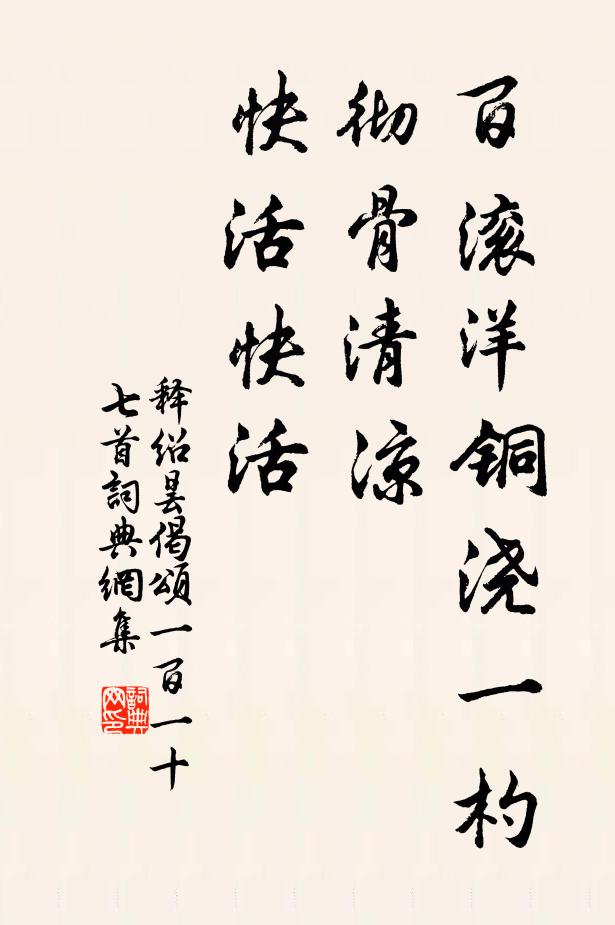 百滚洋铜浇一杓
彻骨清凉
快活快活
释绍昙偈颂一百一十
七首詞典網集
詞典网印